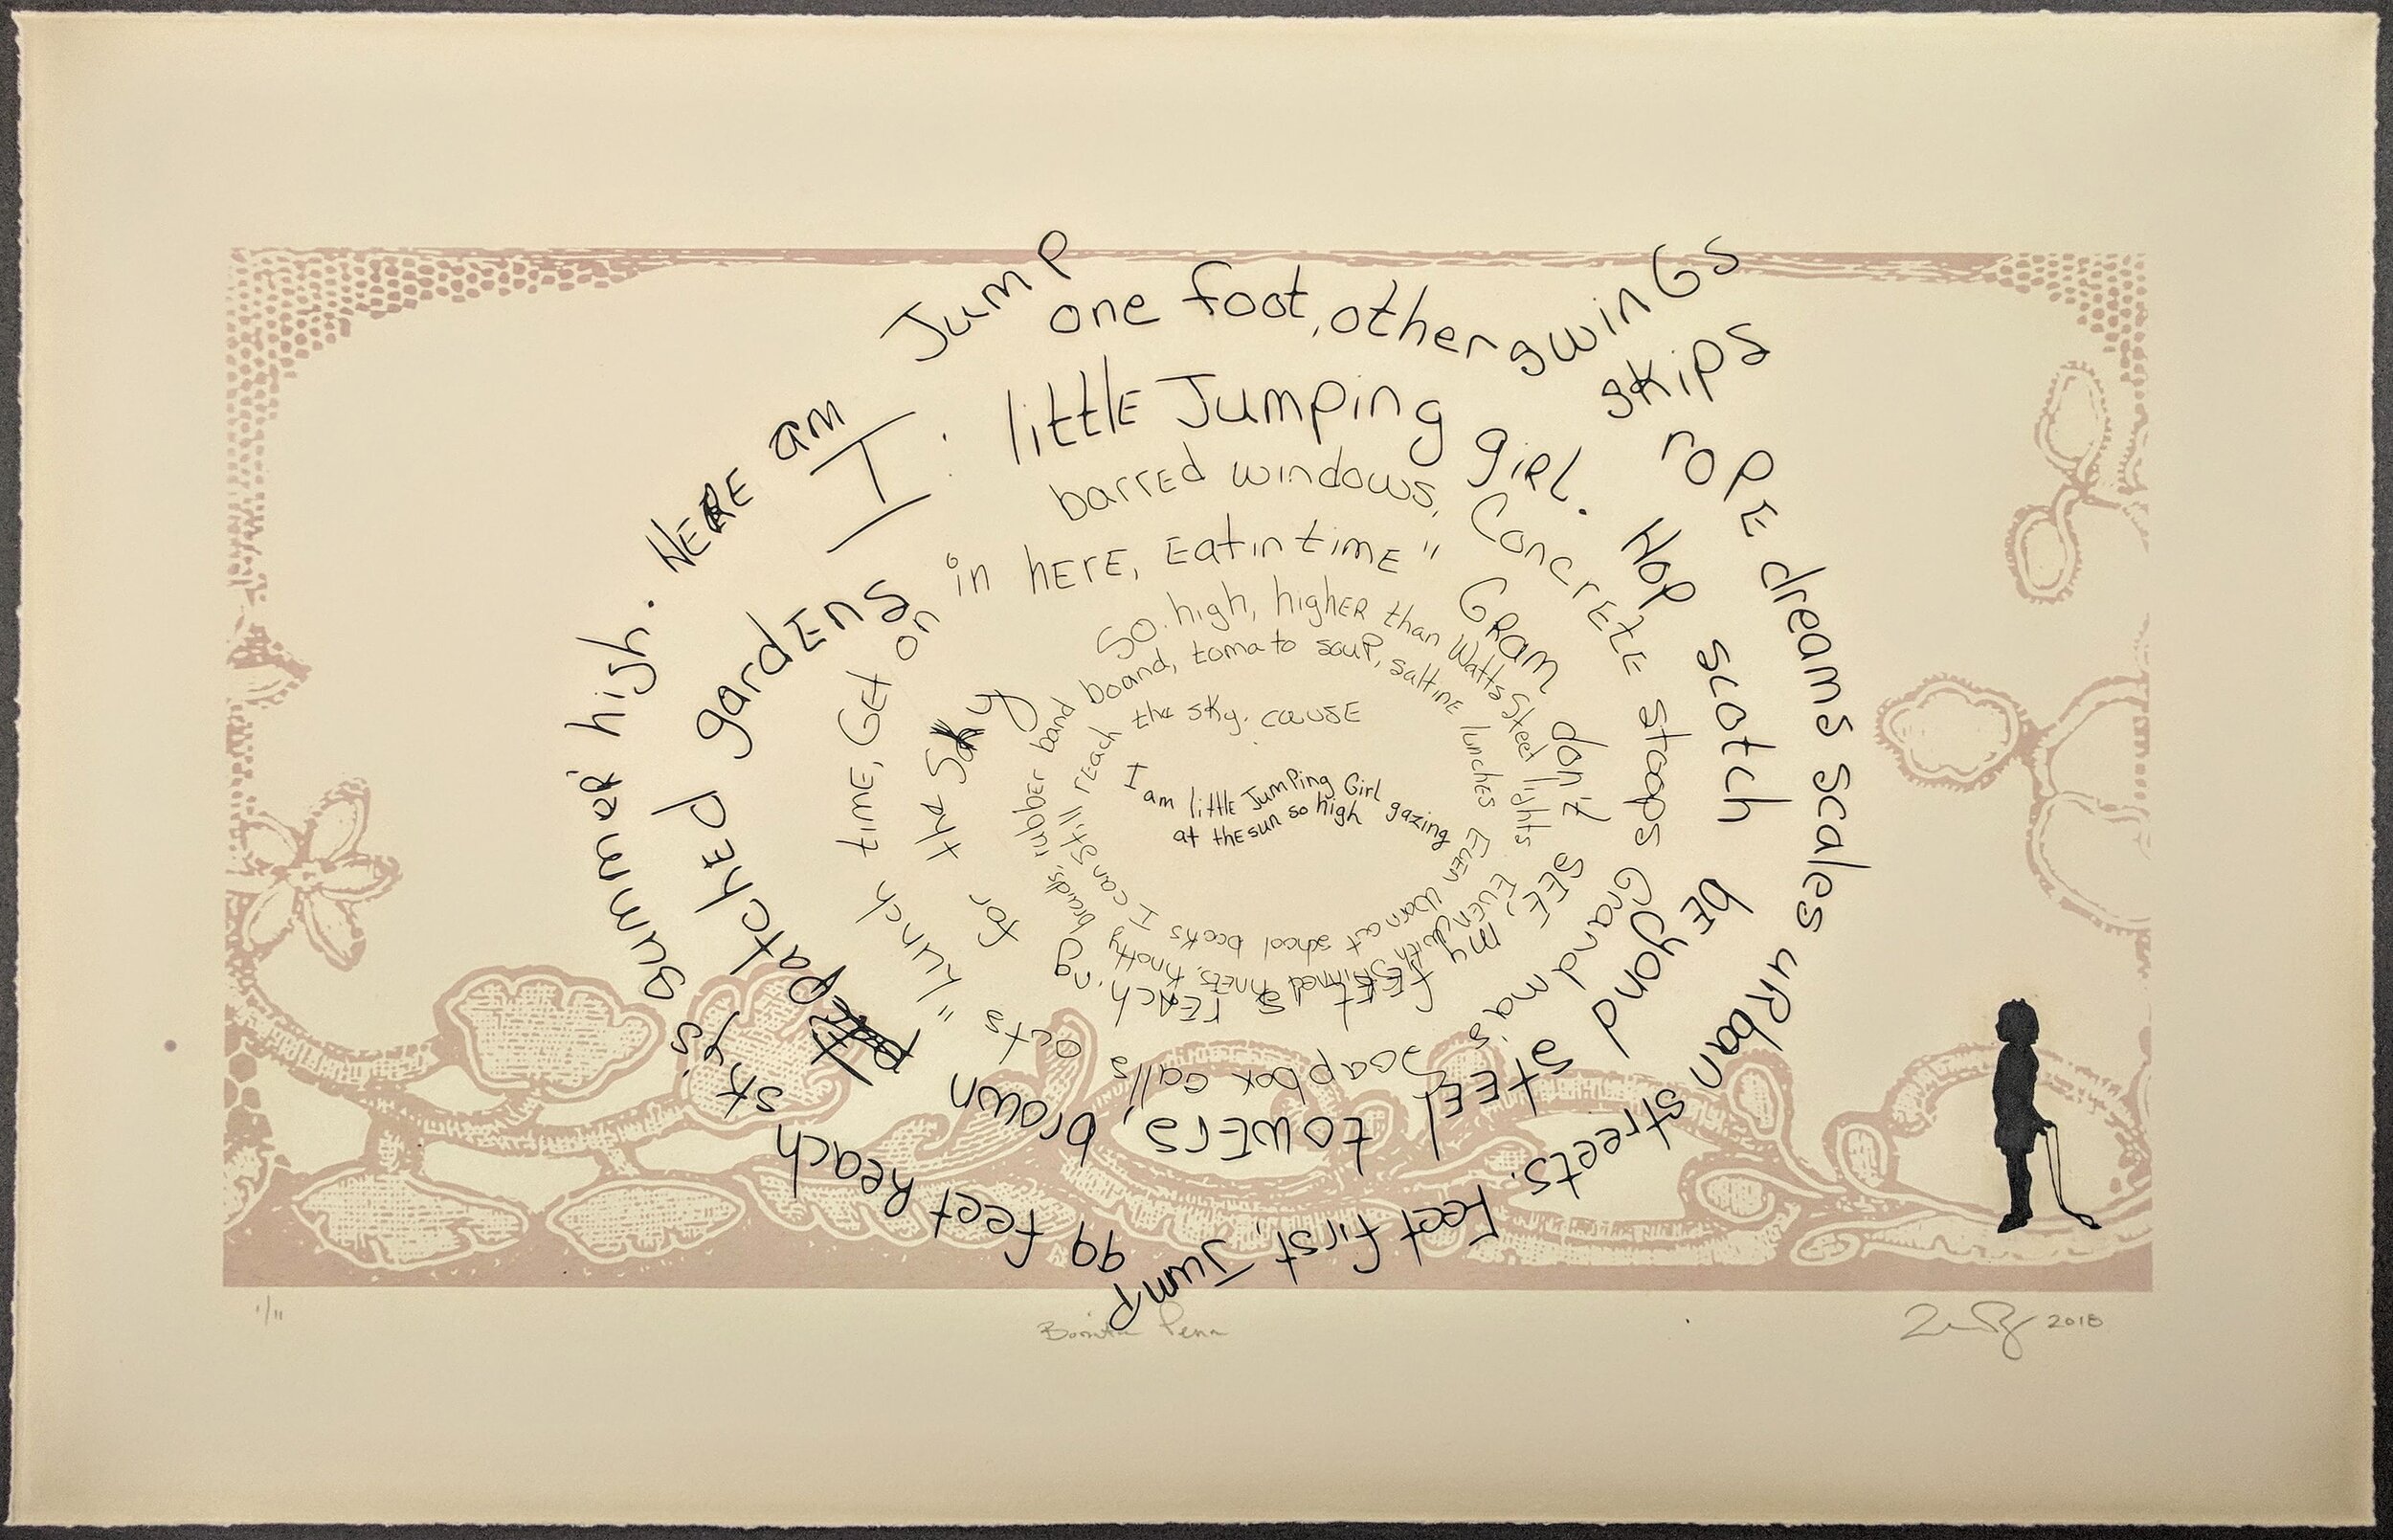 Jump
one foot, other swings
skips
rope dreams scales urban streets. Feet first, Jump
99 feet Reach sky's summer high. Here am I: little Jumping girl. Hop scotch beyond steel towers, brown patched gardens
barred windows. Concrete stoops Grandma's soapbox calls acts "lunch time, Get on in here, Eatin time" Gram don't see, my feet reaching for the sky
So high, higher than Watts Steel lights Even with skinned knees, knotty braids, rubber band board, tomato soup, saltine lunches Even worn out school books I can still reach the sky. cause
I am little Jumping Girl gazing at the sun so high
1/11
2018